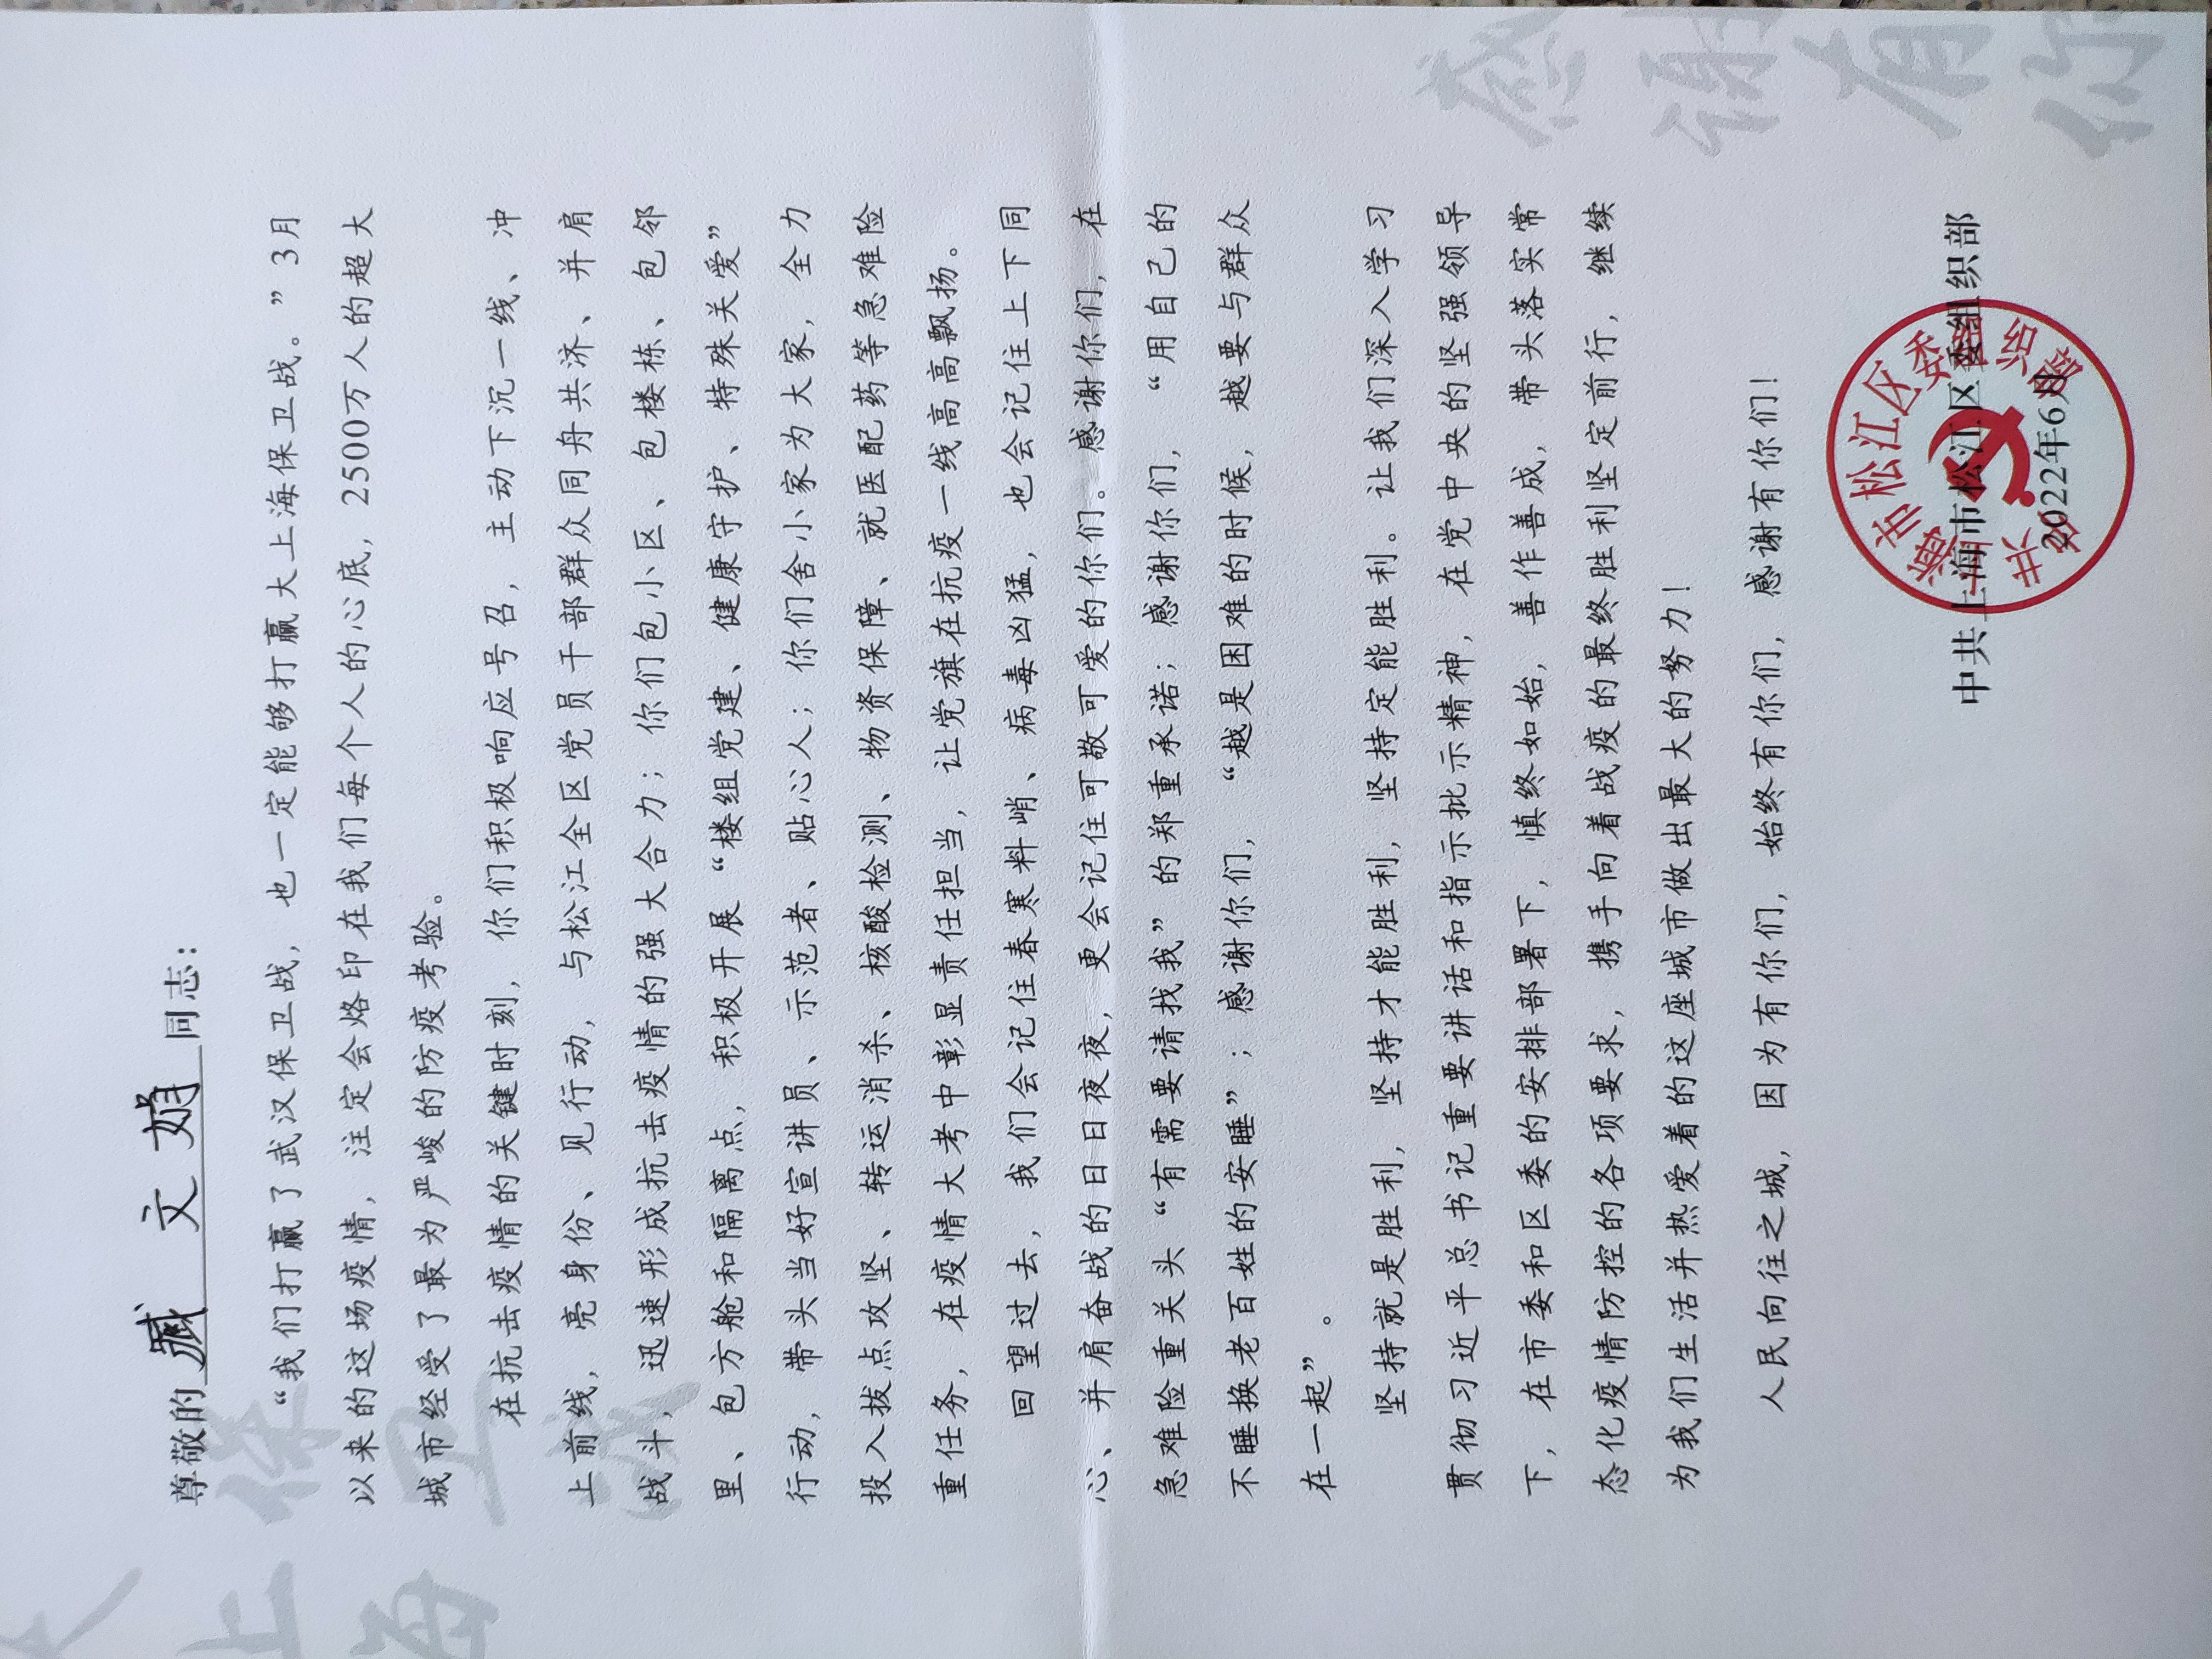 尊敬的臧文娟同志：
“我们打赢了武汉保卫战，也一定能够打赢大上海保卫战。”3月
以来的这场疫情，注定会烙印在我们每个人的心底，2500万人的超大
城市经受了最为严峻的防疫考验。
在抗击疫情的关键时刻，你们积极响应号召，主动下沉一线、冲
上前线，亮身份、见行动，与松江全区党员干部群众同舟共济、并肩
战斗，迅速形成抗击疫情的强大合力；你们包小区、包楼栋、包邻
里、包方舱和隔离点，积极开展“楼组党建、健康守护、特殊关爱”
行动，带头当好宣讲员、示范者、贴心人；你们舍小家为大家，全力
投入拔点攻坚、转运消杀、核酸检测、物资保障、就医配药等急难险
重任务，在疫情大考中彰显责任担当，让党旗在抗疫一线高高飘扬。
回望过去，我们会记住春寒料峭、病毒凶猛，也会记住上下同
心、并肩奋战的日日夜夜，更会记住可敬可爱的你们。感谢你们，在
急难险重关头“有需要请找我”的郑重承诺；感谢你们，“用自己的
不睡换老百姓的安睡”；感谢你们，“越是困难的时候，越要与群众
在一起”。
坚持就是胜利，坚持才能胜利，坚持定能胜利。让我们深入学习
贯彻习近平总书记重要讲话和指示批示精神，在党中央的坚强领导
下，在市委和区委的安排部署下，慎终如始，善作善成，带头落实常
态化疫情防控的各项要求，携手向着战疫的最终胜利坚定前行，继续
为我们生活并热爱着的这座城市做出最大的努力！
人民向往之城，因为有你们，始终有你们，感谢有你们！
中共上海市松江区委组织部
2022年6月
中共上海市松江区委组织部
大上海
保卫战
感谢有你